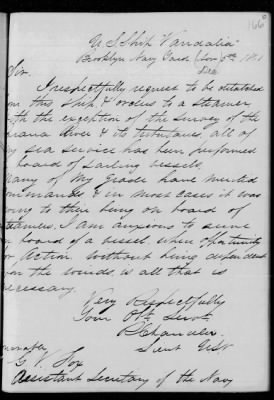 166
U S Ship Vandalia
Brooklyn Navy Yard
Sir
I respectfully request to be detatched
this Ship, & orders to a Steamer
with the exception of the survey of the
& its tributaries, all of
my sea service has been performed
board of sailing vessels.
many of my grade have
& in most cases it was
to their being on board of
steamers. I am anxious to serve
board of a vessel, where opportunity
for Action without being dependent
the winds is all that is
necessary.
Very Respectfully
Your Obt. Servt.
R Chandler
Lieut USN
G. V. Fox
Assistant Secretary of the Navy